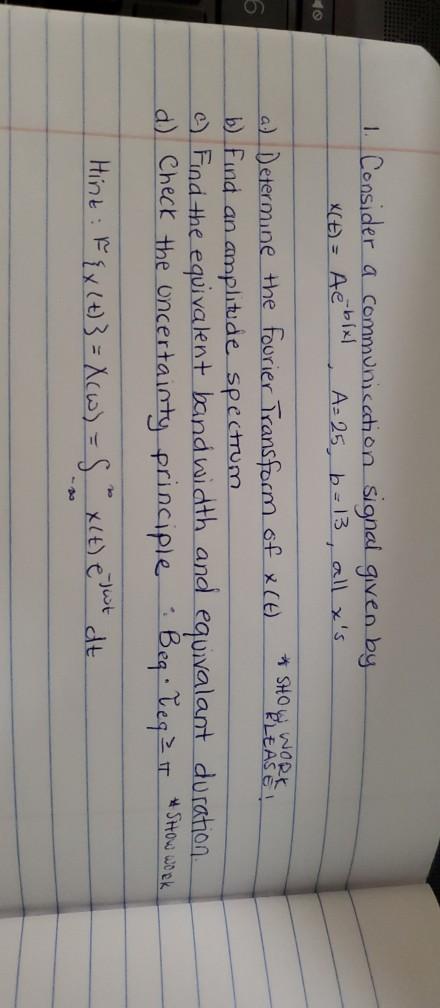 1. Consider a communication signal given by
x(t) = Ae^-b|x| , A=25, b=13, all x's
a) Determine the fourier Transform of x(t) * SHOW WORK PLEASE!
b) Find an amplitude spectrum
c) Find the equivalent bandwidth and equivalant duration.
d) Check the uncertainty principle : Beq · τeq ≥ π * SHOW WORK
Hint : F{x(t)} = X(ω) = ∫_-∞^∞ x(t) e^-jωt dt
6